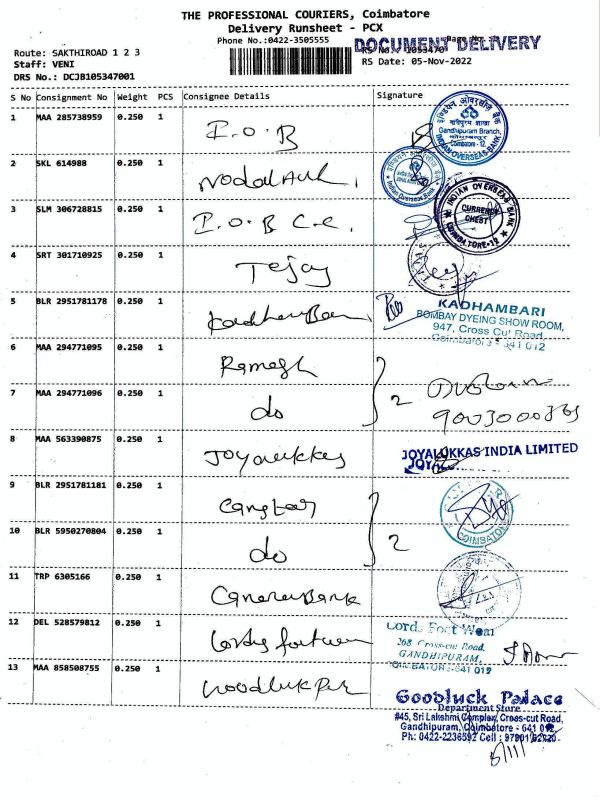 THE PROFESSIONAL COURIERS, Coimbatore
Delivery Runsheet - PCX
Phone No.:0422-3505555
DOCUMENT DELIVERY
Route: SAKTHIROAD 1 2 3
Staff: VENI
RS Date: 05-Nov-2022
DRS No.: DCJB105347001
S No Consignment No Weight PCS Consignee Details Signature
1 MAA 285738959 0.250 1 I.O.B
इण्डियन ओवरसीज़ बैंक
Gandhipuram Branch,
Coimbatore - 12.
INDIAN OVERSEAS BANK
2 SKL 614988 0.250 1
Indian Overseas Bank
3 SLM 306728815 0.250 1 I.O.B C.C.
INDIAN OVERSEAS BANK
CURRENCY
CHEST
COIMBATORE-12
4 SRT 301710925 0.250 1 Tejay
5 BLR 2951781178 0.250 1
KADHAMBARI
BOMBAY DYEING SHOW ROOM,
947, Cross Cut Road,
Coimbatore - 641 012
6 MAA 294771095 0.250 1 Ramesh
7 MAA 294771096 0.250 1 do
2
8 MAA 563390875 0.250 1 Joyalukkas
JOYALUKKAS INDIA LIMITED
9 BLR 2951781181 0.250 1
10 BLR 5950270804 0.250 1 do
2
COIMBATORE
11 TRP 6305166 0.250 1 Canara Bank
12 DEL 528579812 0.250 1
Lords Foot Wear
268 Cross-cut Road,
GANDHIPURAM,
COIMBATORE - 641 012
13 MAA 858508755 0.250 1
Goodluck Palace
Department Store
#45, Sri Lakshmi Complex, Cross-cut Road,
Gandhipuram, Coimbatore - 641 012
Ph: 0422-2236592 Cell :